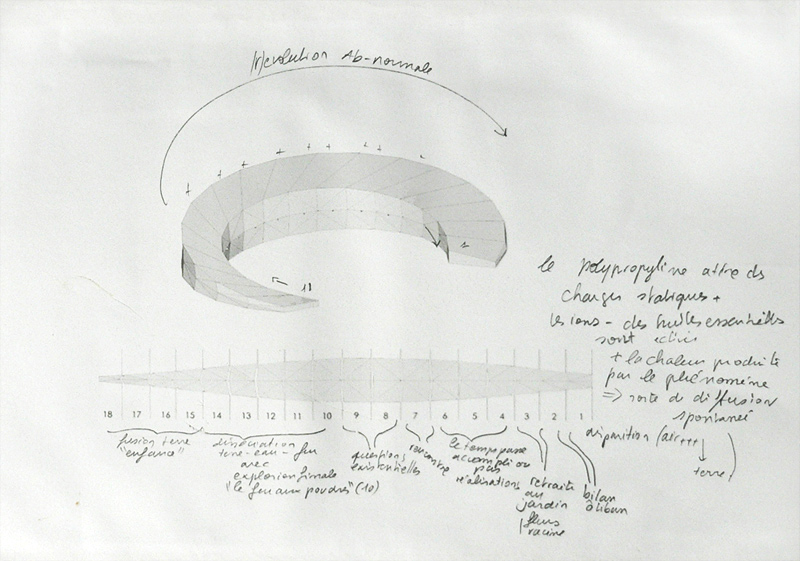 (r)evolution Ab-normale
1
18
le polypropylène attire des
charges statiques +
les ions - des huiles essentielles
sont
+ la chaleur produite
par le phénomène
=> sorte de diffusion
spontanée
18 17 16 15 14 13 12 11 10 9 8 7 6 5 4 3 2 1
fusion terre
"enfance"
dissociation
terre-eau-feu
avec
explosion finale
"le feu aux poudres" (10)
questions
existentielles
rencontre
le temps passe
accompli ou
pas
réalisations
retraite
au
jardin
fleurs
racine
bilan
oliban
disparition (air+++
terre)